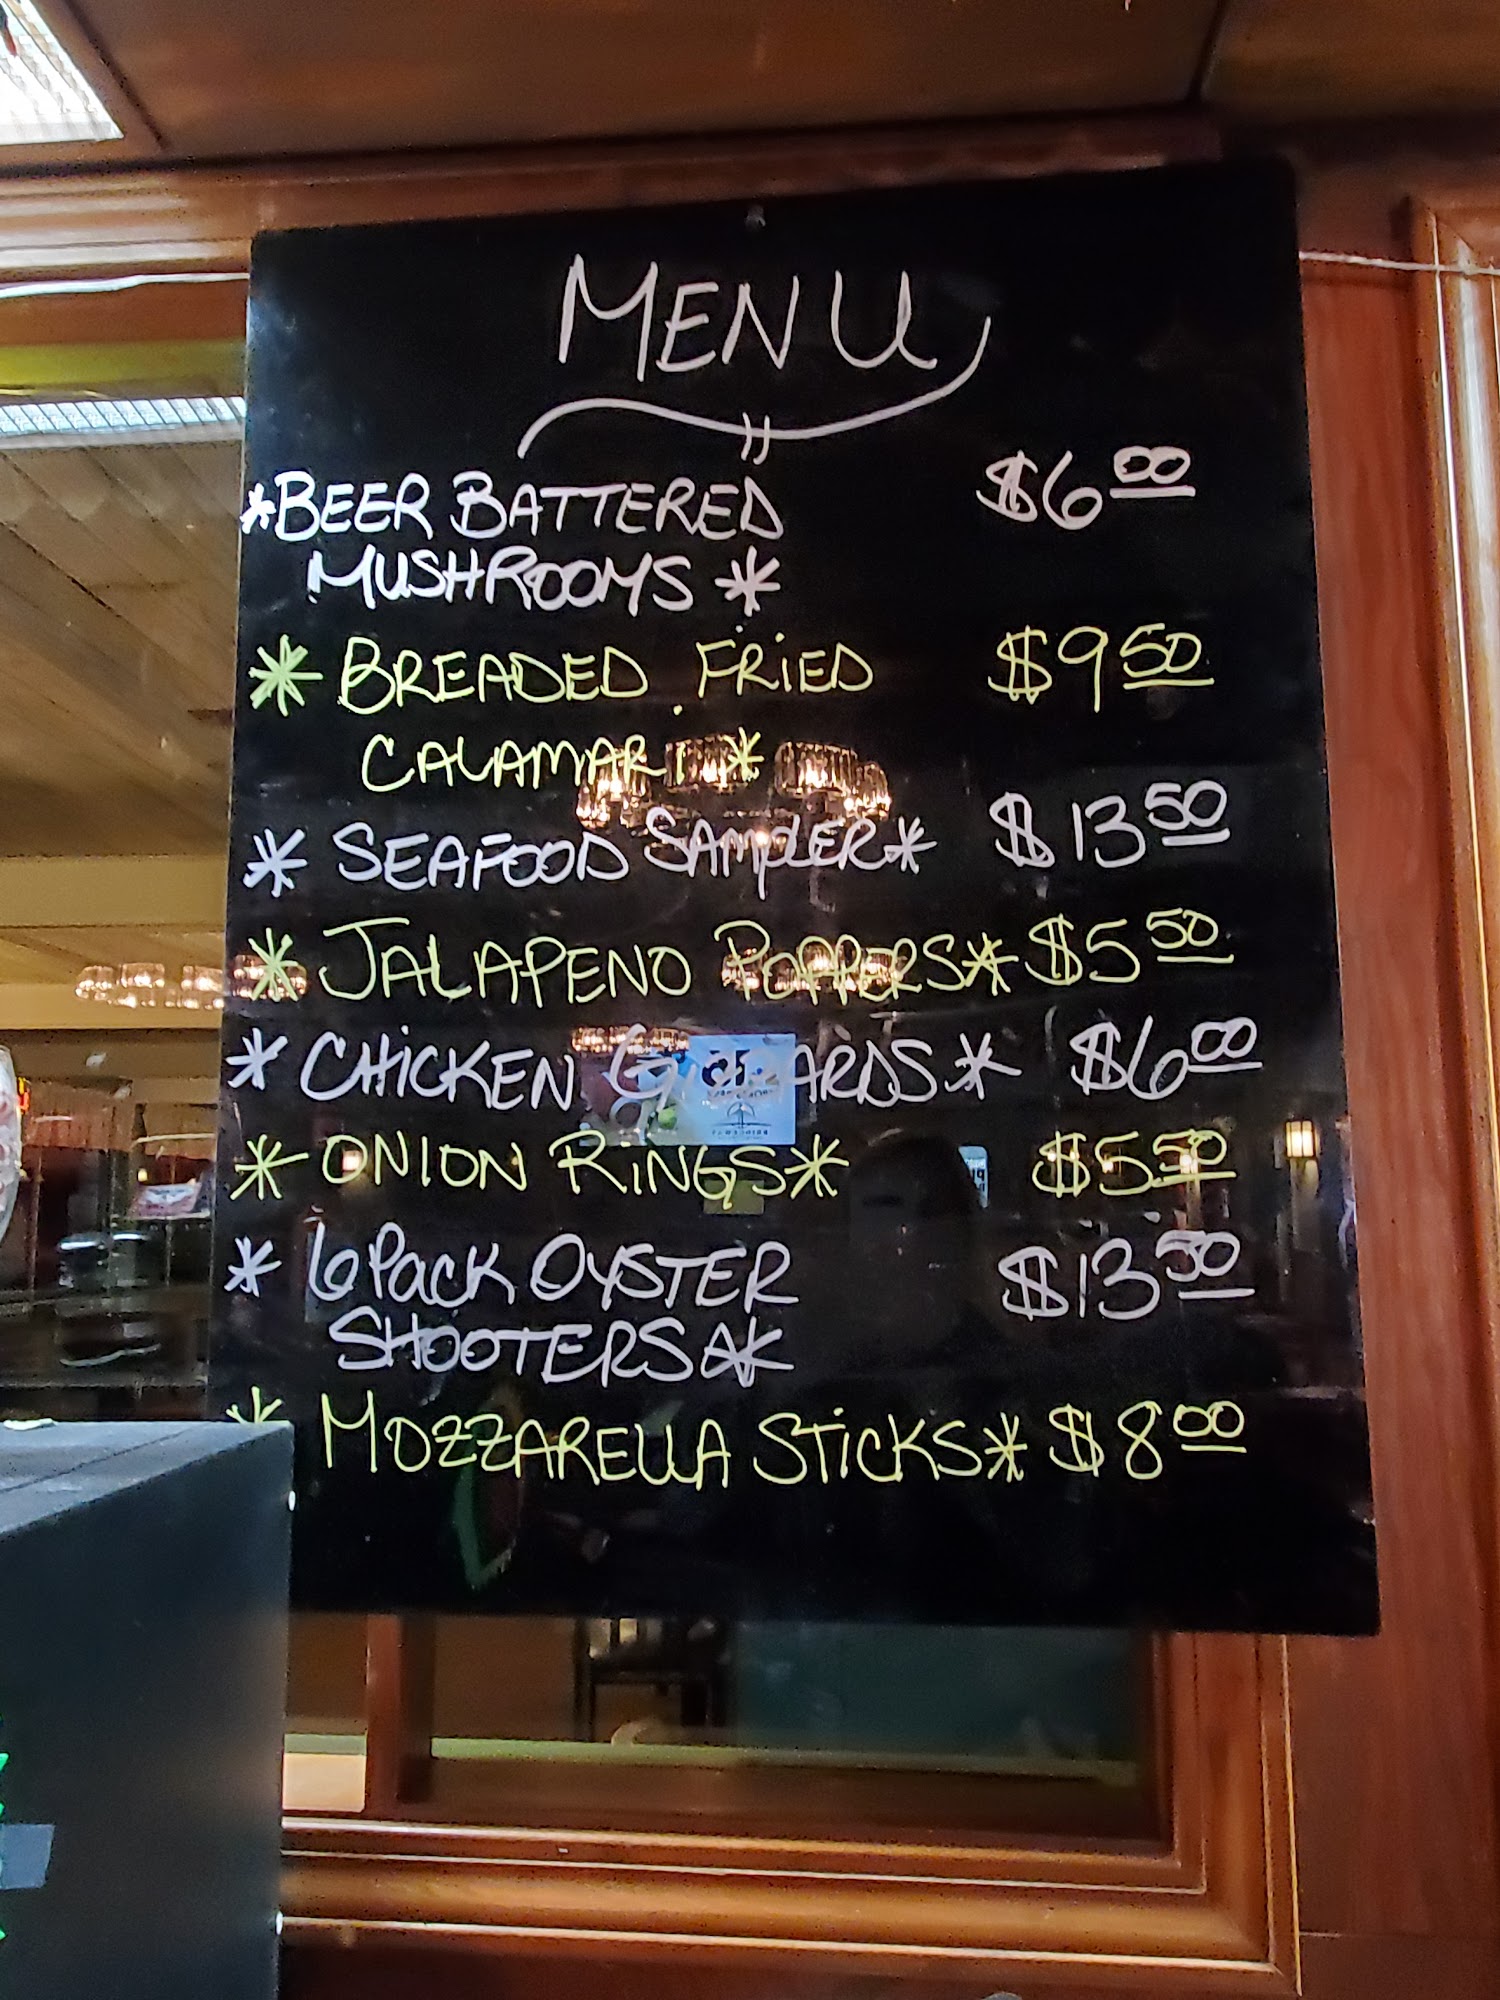 MENU
*BEER BATTERED $6.00
MUSHROOMS *
* BREADED FRIED $9.50
CALAMARI *
* SEAFOOD SAMPLER* $13.50
* JALAPENO POPPERS* $5.50
* CHICKEN GIZZARDS* $6.00
* ONION RINGS* $5.50
* 6 Pack OYSTER $13.50
SHOOTERS *
* MOZZARELLA STICKS* $8.00